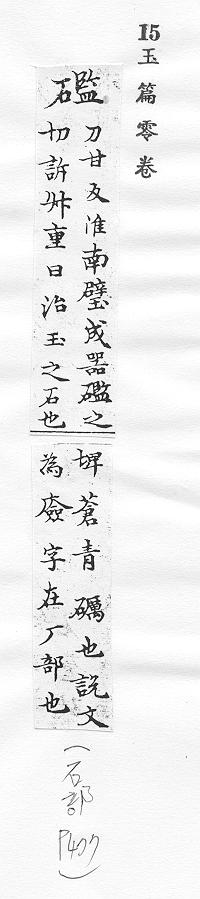 15 玉篇零卷
礛
刀甘反淮南璧成器礛之
切許舛重曰治玉之石也
埤蒼青礪也説文
為厱字在厂部也
(石部